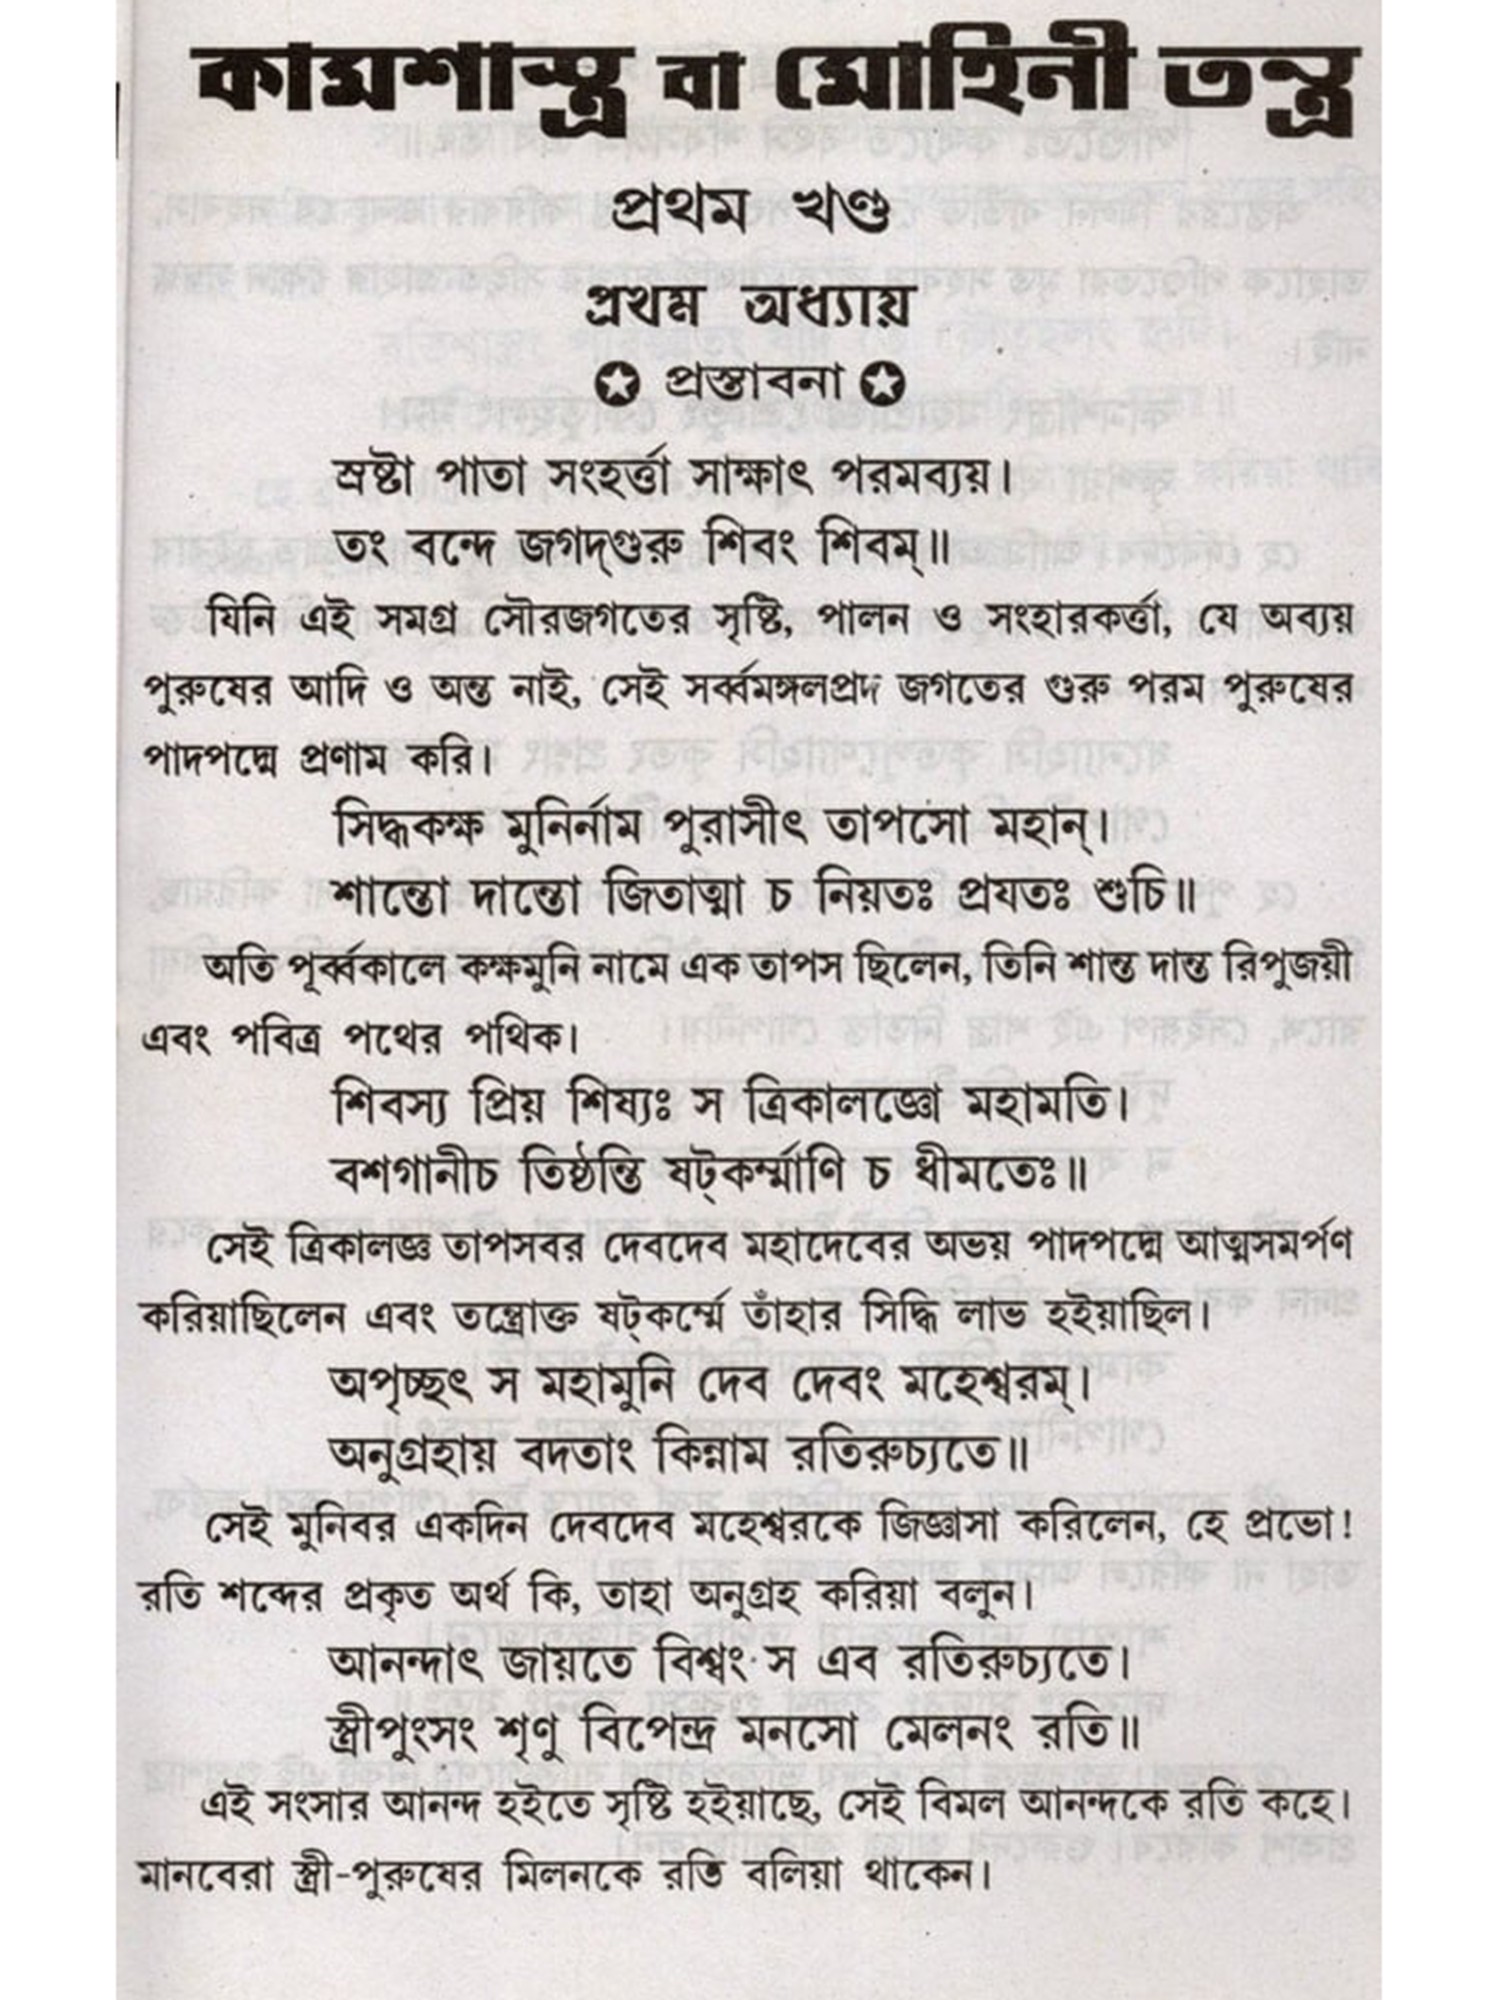 কামশাস্ত্র বা মোহিনী তন্ত্র
প্রথম খণ্ড
প্রথম অধ্যায়
প্রস্তাবনা
স্রষ্টা পাতা সংহর্ত্তা সাক্ষাৎ পরমব্যয়।
তং বন্দে জগদ্‌গুরু শিবং শিবম্॥
যিনি এই সমগ্র সৌরজগতের সৃষ্টি, পালন ও সংহারকর্ত্তা, যে অব্যয়
পুরুষের আদি ও অন্ত নাই, সেই সর্ব্বমঙ্গলপ্রদ জগতের গুরু পরম পুরুষের
পাদপদ্মে প্রণাম করি।
সিদ্ধকক্ষ মুনির্নাম পুরাসীৎ তাপসো মহান্।
শান্তো দান্তো জিতাত্মা চ নিয়তঃ প্রযতঃ শুচি॥
অতি পূর্ব্বকালে কক্ষমুনি নামে এক তাপস ছিলেন, তিনি শান্ত দান্ত রিপুজয়ী
এবং পবিত্র পথের পথিক।
শিবস্য প্রিয় শিষ্যঃ স ত্রিকালজ্ঞো মহামতি।
বশগানীচ তিষ্ঠন্তি ষট্‌কর্ম্মাণি চ ধীমতেঃ॥
সেই ত্রিকালজ্ঞ তাপসবর দেবদেব মহাদেবের অভয় পাদপদ্মে আত্মসমর্পণ
করিয়াছিলেন এবং তন্ত্রোক্ত ষট্‌কর্ম্মে তাঁহার সিদ্ধি লাভ হইয়াছিল।
অপৃচ্ছৎ স মহামুনি দেব দেবং মহেশ্বরম্।
অনুগ্রহায় বদতাং কিন্নাম রতিরুচ্যতে॥
সেই মুনিবর একদিন দেবদেব মহেশ্বরকে জিজ্ঞাসা করিলেন, হে প্রভো!
রতি শব্দের প্রকৃত অর্থ কি, তাহা অনুগ্রহ করিয়া বলুন।
আনন্দাৎ জায়তে বিশ্বং স এব রতিরুচ্যতে।
স্ত্রীপুংসং শৃণু বিপেন্দ্র মনসো মেলনং রতি॥
এই সংসার আনন্দ হইতে সৃষ্টি হইয়াছে, সেই বিমল আনন্দকে রতি কহে।
মানবেরা স্ত্রী-পুরুষের মিলনকে রতি বলিয়া থাকেন।